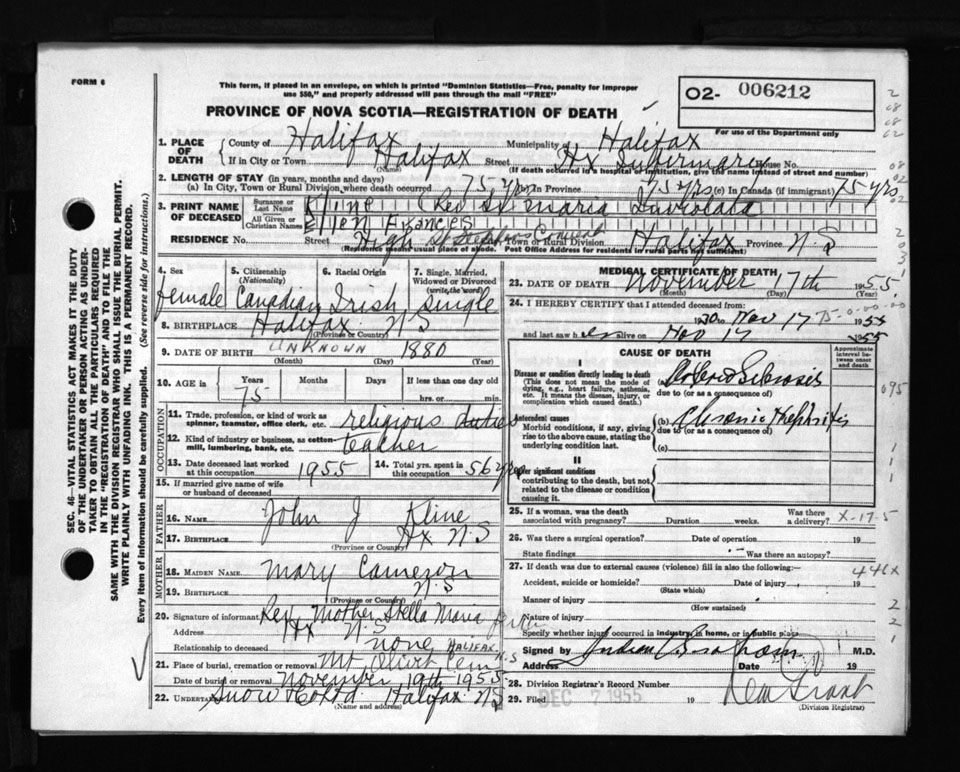 FORM 6
This form, if placed in an envelope, on which is printed "Dominion Statistics—Free, penalty for improper
use $50," and properly addressed will pass through the mail "FREE"
PROVINCE OF NOVA SCOTIA—REGISTRATION OF DEATH
02- 006212
For use of the Department only
1. PLACE OF DEATH
County of Halifax Municipality of Halifax
If in City or Town Halifax Street Hx House No.
(Name) (If death occurred in a hospital or institution, give the name instead of street and number)
2. LENGTH OF STAY (in years, months and days)
(a) In City, Town or Rural Division where death occurred 75 yrs (b) In Province 75 yrs (c) In Canada (if immigrant) 75 yrs
3. PRINT NAME OF DECEASED
Surname or Last Name Kline (Rev Sr Maria
All Given or Christian Names Ellen Frances
RESIDENCE No. Street Convent Town or Rural Division Halifax Province N S
(Residence usual place of abode. Post Office Address for residents in rural parts not sufficient)
4. Sex female
5. Citizenship (Nationality) Canadian
6. Racial Origin Irish
7. Single, Married, Widowed or Divorced (write the word) single
8. BIRTHPLACE Halifax N S
(Province or Country)
9. DATE OF BIRTH UNKNOWN 1880
(Month) (Day) (Year)
10. AGE in Years Months Days If less than one day old
75 hrs. or min.
OCCUPATION
11. Trade, profession, or kind of work as spinner, teamster, office clerk, etc. religious duties
12. Kind of industry or business, as cotton-mill, lumbering, bank, etc. teacher
13. Date deceased last worked at this occupation 1955
14. Total yrs. spent in this occupation 56 yrs
15. If married give name of wife or husband of deceased
FATHER
16. NAME John J Kline
17. BIRTHPLACE Hx N S
(Province or Country)
MOTHER
18. MAIDEN NAME Mary Cameron
19. BIRTHPLACE N S
(Province or Country)
20. Signature of informant Rev Mother Stella Maria
Address Hx N S
Relationship to deceased none
21. Place of burial, cremation or removal Mt Olivet Cem HALIFAX N S
Date of burial or removal November 19th 1955
22. UNDERTAKER Snow & Co Ltd Halifax N S
(Name and address)
MEDICAL CERTIFICATE OF DEATH
23. DATE OF DEATH November 17th 1955
(Month) (Day) (Year)
24. I HEREBY CERTIFY that I attended deceased from:
1930 to Nov 17 1955
and last saw her alive on Nov 17 1955
CAUSE OF DEATH
Approximate interval between onset and death
I
Disease or condition directly leading to death
(This does not mean the mode of dying, e.g., heart failure, asthenia, etc. It means the disease, injury, or complication which caused death.)
due to (or as a consequence of)
Antecedent causes
Morbid conditions, if any, giving rise to the above cause, stating the underlying condition last.
(b) Chronic Nephritis
due to (or as a consequence of)
(c)
II
Other significant conditions
contributing to the death, but not related to the disease or condition causing it.
25. If a woman, was the death associated with pregnancy? Duration weeks. Was there a delivery?
X-17-5
26. Was there a surgical operation? Date of operation 19
State findings Was there an autopsy?
27. If death was due to external causes (violence) fill in also the following:—
446X
Accident, suicide or homicide? Date of injury 19
(State which)
Manner of injury
(How sustained)
Nature of injury
Specify whether injury occurred in industry, in home, or in public place
Signed by M.D.
Address Date 19
28. Division Registrar's Record Number
29. Filed DEC 7 1955 19
(Division Registrar)
SEC. 46—VITAL STATISTICS ACT MAKES IT THE DUTY
OF THE UNDERTAKER OR PERSON ACTING AS UNDER-
TAKER TO OBTAIN ALL THE PARTICULARS REQUIRED
IN THE "REGISTRATION OF DEATH" AND TO FILE THE
SAME WITH THE DIVISION REGISTRAR WHO SHALL ISSUE THE BURIAL PERMIT.
WRITE PLAINLY WITH UNFADING INK. THIS IS A PERMANENT RECORD.
Every item of information should be carefully supplied. (See reverse side for instructions.)